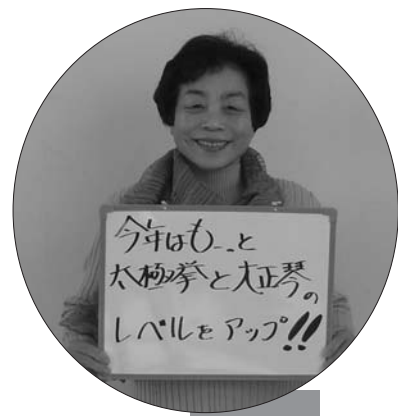 今年はもーっと
太極拳と大正琴の
レベルをアップ!!